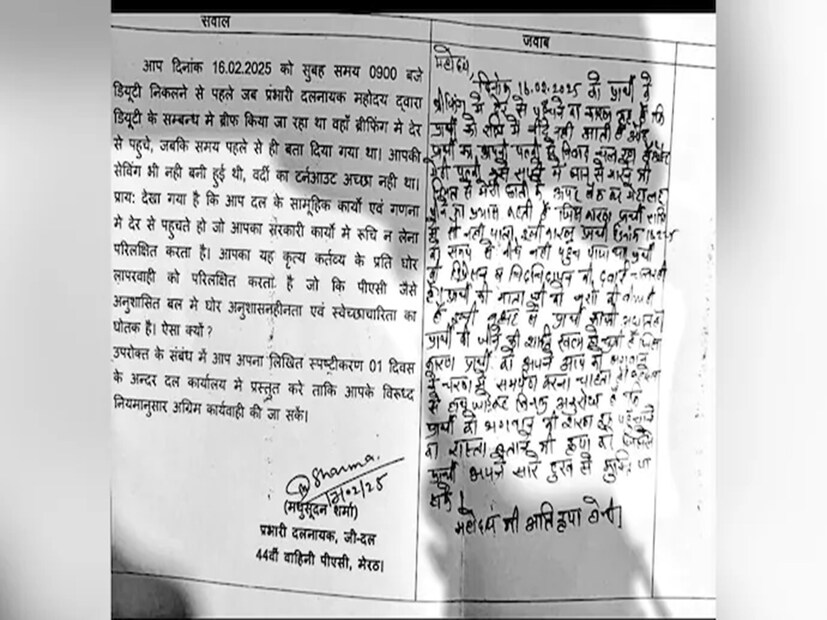 सवाल
आप दिनांक 16.02.2025 को सुबह समय 0900 बजे
डियूटी निकलने से पहले जब प्रभारी दलनायक महोदय द्वारा
डियूटी के सम्बन्ध मे ब्रीफ किया जा रहा था वहाँ ब्रीफिंग मे देर
से पहुचे, जबकि समय पहले से ही बता दिया गया था। आपकी
सेविंग भी नही बनी हुई थी, वर्दी का टर्नआउट अच्छा नही था।
प्राय: देखा गया है कि आप दल के सामूहिक कार्यो एवं गणना
मे देर से पहुचते हो जो आपका सरकारी कार्यो मे रूचि न लेना
परिलक्षित करता है। आपका यह कृत्य कर्तव्य के प्रति घोर
लापरवाही को परिलक्षित करता है जो कि पीएसी जैसे
अनुशासित बल मे घोर अनुशासनहीनता एवं स्वेच्छाचारिता का
धोतक है। ऐसा क्यो ?
उपरोक्त के संबंध में आप अपना लिखित स्पष्टीकरण 01 दिवस
के अन्दर दल कार्यालय मे प्रस्तुत करे ताकि आपके विरूध्द
नियमानुसार अग्रिम कार्यवाही की जा सकें।
Sharma
17/02/25
(मधुसूदन शर्मा)
प्रभारी दलनायक, जी-दल
44वी वाहिनी पीएसी, मेरठ।
जवाब
महोदय,
दिनांक 16.02.2025 को प्रार्थी के
ब्रीफिंग में देर से पहुंचने का कारण यह है कि
प्रार्थी को रात्रि में नींद नहीं आती है और
प्रार्थी का अपनी पत्नी से विवाद चल रहा है
मेरी पत्नी मुझे सपने में जान से मारने की
से मेरी छाती के ऊपर बैठ कर मेरा खून
पीने का प्रयास करती है जिस कारण प्रार्थी रात्रि
में सो नहीं पाता, इसी कारण प्रार्थी दिनांक 16.2.25
को समय से नहीं पहुंच पाया था प्रार्थी
डिप्रेशन व चिड़चिड़ापन की दवाई
है। प्रार्थी की माता को भी
प्रार्थी
प्रार्थी की जीने की इच्छा खत्म हो चुकी है जिस
कारण प्रार्थी अपने आप को भगवान
के चरणों में समर्पण करना चाहता है
से अनुरोध है कि
प्रार्थी को भगवान की शरण में
का रास्ता बताने की कृपा करें जिससे
प्रार्थी अपने सारे दुख से मुक्ति पा
सके।
महोदय की अति कृपा होगी।